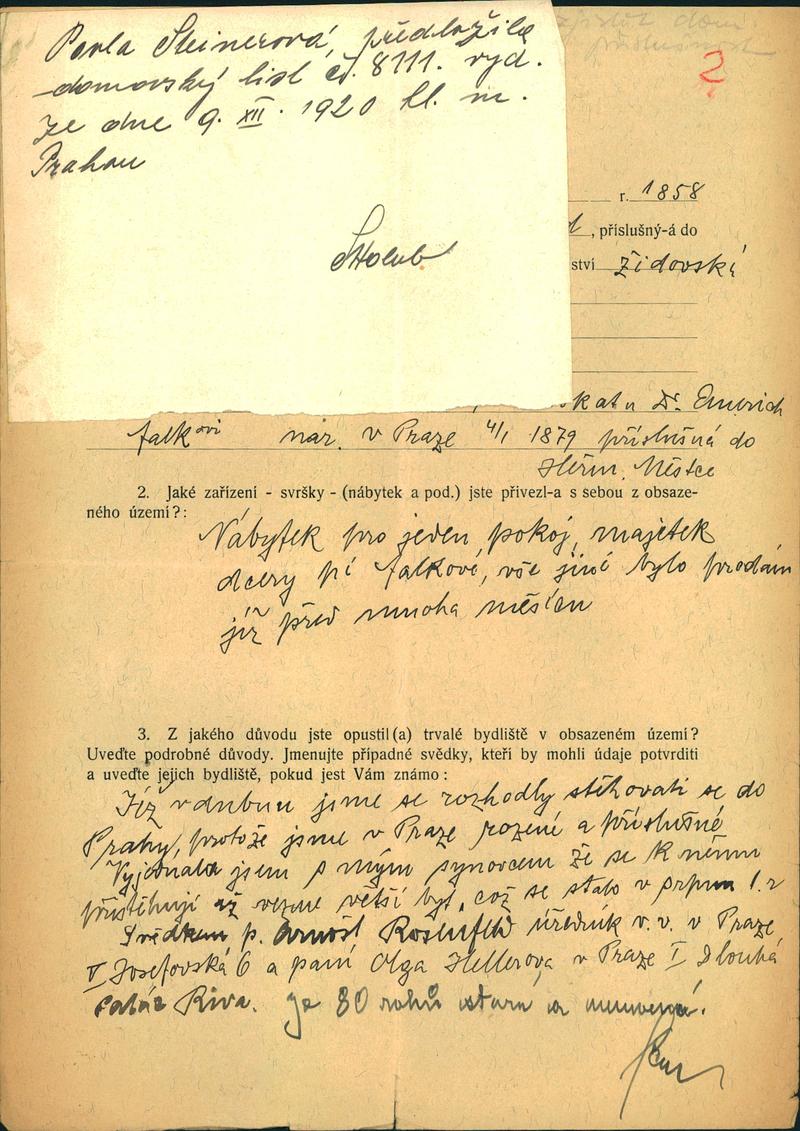 Pavla Steinerová, předložila
domovský list čs. 8111. vyd.
ze dne 9. XII. 1920 hl. m.
Prahou
Holub
zjistit dom.
příslušnost
2
r. 1858
, příslušný-á do
ství židovské
Dr. Emerich
Falkovi nar. v Praze 4/1 1879 příslušná do
Heřm. Městce
2. Jaké zařízení - svršky - (nábytek a pod.) jste přivezl-a s sebou z obsaze-
ného území?:
Nábytek pro jeden pokoj, majetek
dcery pí Falkové, vše jiné bylo prodán
již před mnoha měsíci
3. Z jakého důvodu jste opustil(a) trvalé bydliště v obsazeném území?
Uveďte podrobné důvody. Jmenujte případné svědky, kteří by mohli údaje potvrditi
a uveďte jejich bydliště, pokud jest Vám známo:
Již v dubnu jsme se rozhodly stěhovati se do
Prahy, protože jsme v Praze rozené a příslušné
Vyjednala jsem s mým synovcem že se k němu
přistěhuji až vezme větší byt, což se stalo v srpnu t. r
Svědkem p. Arnošt Rosenfeld úředník v. v. v Praze
V Josefovská 6 a paní Olga Hellerova v Praze I Dlouhá
palác Riva. Je 80 roků stará a